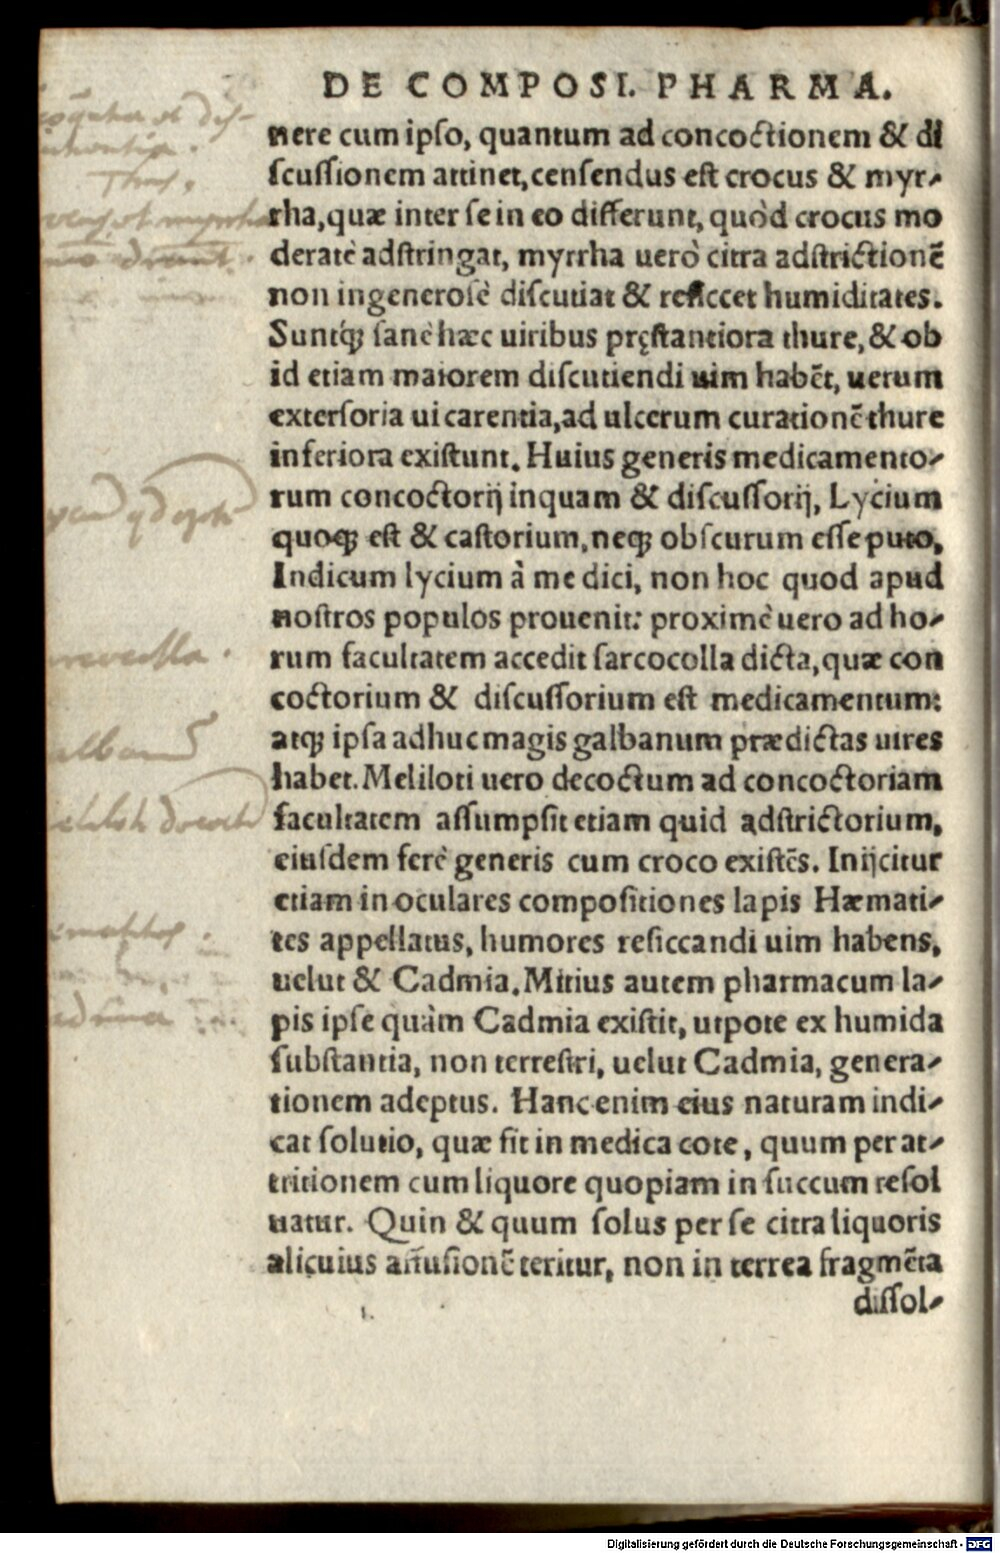 DE COMPOSI. PHARMA.
nere cum ipso, quantum ad concoctionem & di
scussionem attinet, censendus est crocus & myr-
rha, quæ inter se in eo differunt, quòd crocus mo
deratè adstringat, myrrha uerò citra adstrictionẽ
non ingenerosè discutiat & resiccet humiditates.
Suntq́; sanè hæc uiribus pręstantiora thure, & ob
id etiam maiorem discutiendi uim habẽt, uerum
extersoria ui carentia, ad ulcerum curationẽ thure
inferiora existunt. Huius generis medicamento-
rum concoctorij inquam & discussorij, Lycium
quoq; est & castorium, neq; obscurum esse puto,
Indicum lycium à me dici, non hoc quod apud
nostros populos prouenit: proximè uero ad ho-
rum facultatem accedit sarcocolla dicta, quæ con
coctorium & discussorium est medicamentum:
atq; ipsa adhuc magis galbanum prædictas uires
habet. Meliloti uero decoctum ad concoctoriam
facultatem assumpsit etiam quid adstrictorium,
eiusdem ferè generis cum croco existẽs. Inijcitur
etiam in oculares compositiones lapis Hæmati-
tes appellatus, humores resiccandi uim habens,
uelut & Cadmia. Mitius autem pharmacum la-
pis ipse quàm Cadmia existit, utpote ex humida
substantia, non terrestri, uelut Cadmia, genera-
tionem adeptus. Hanc enim eius naturam indi-
cat solutio, quæ fit in medica cote, quum per at-
tritionem cum liquore quopiam in succum resol
uatur. Quin & quum solus per se citra liquoris
alicuius affusionẽ teritur, non in terrea fragmẽta
dissol-
Digitalisierung gefördert durch die Deutsche Forschungsgemeinschaft - DFG